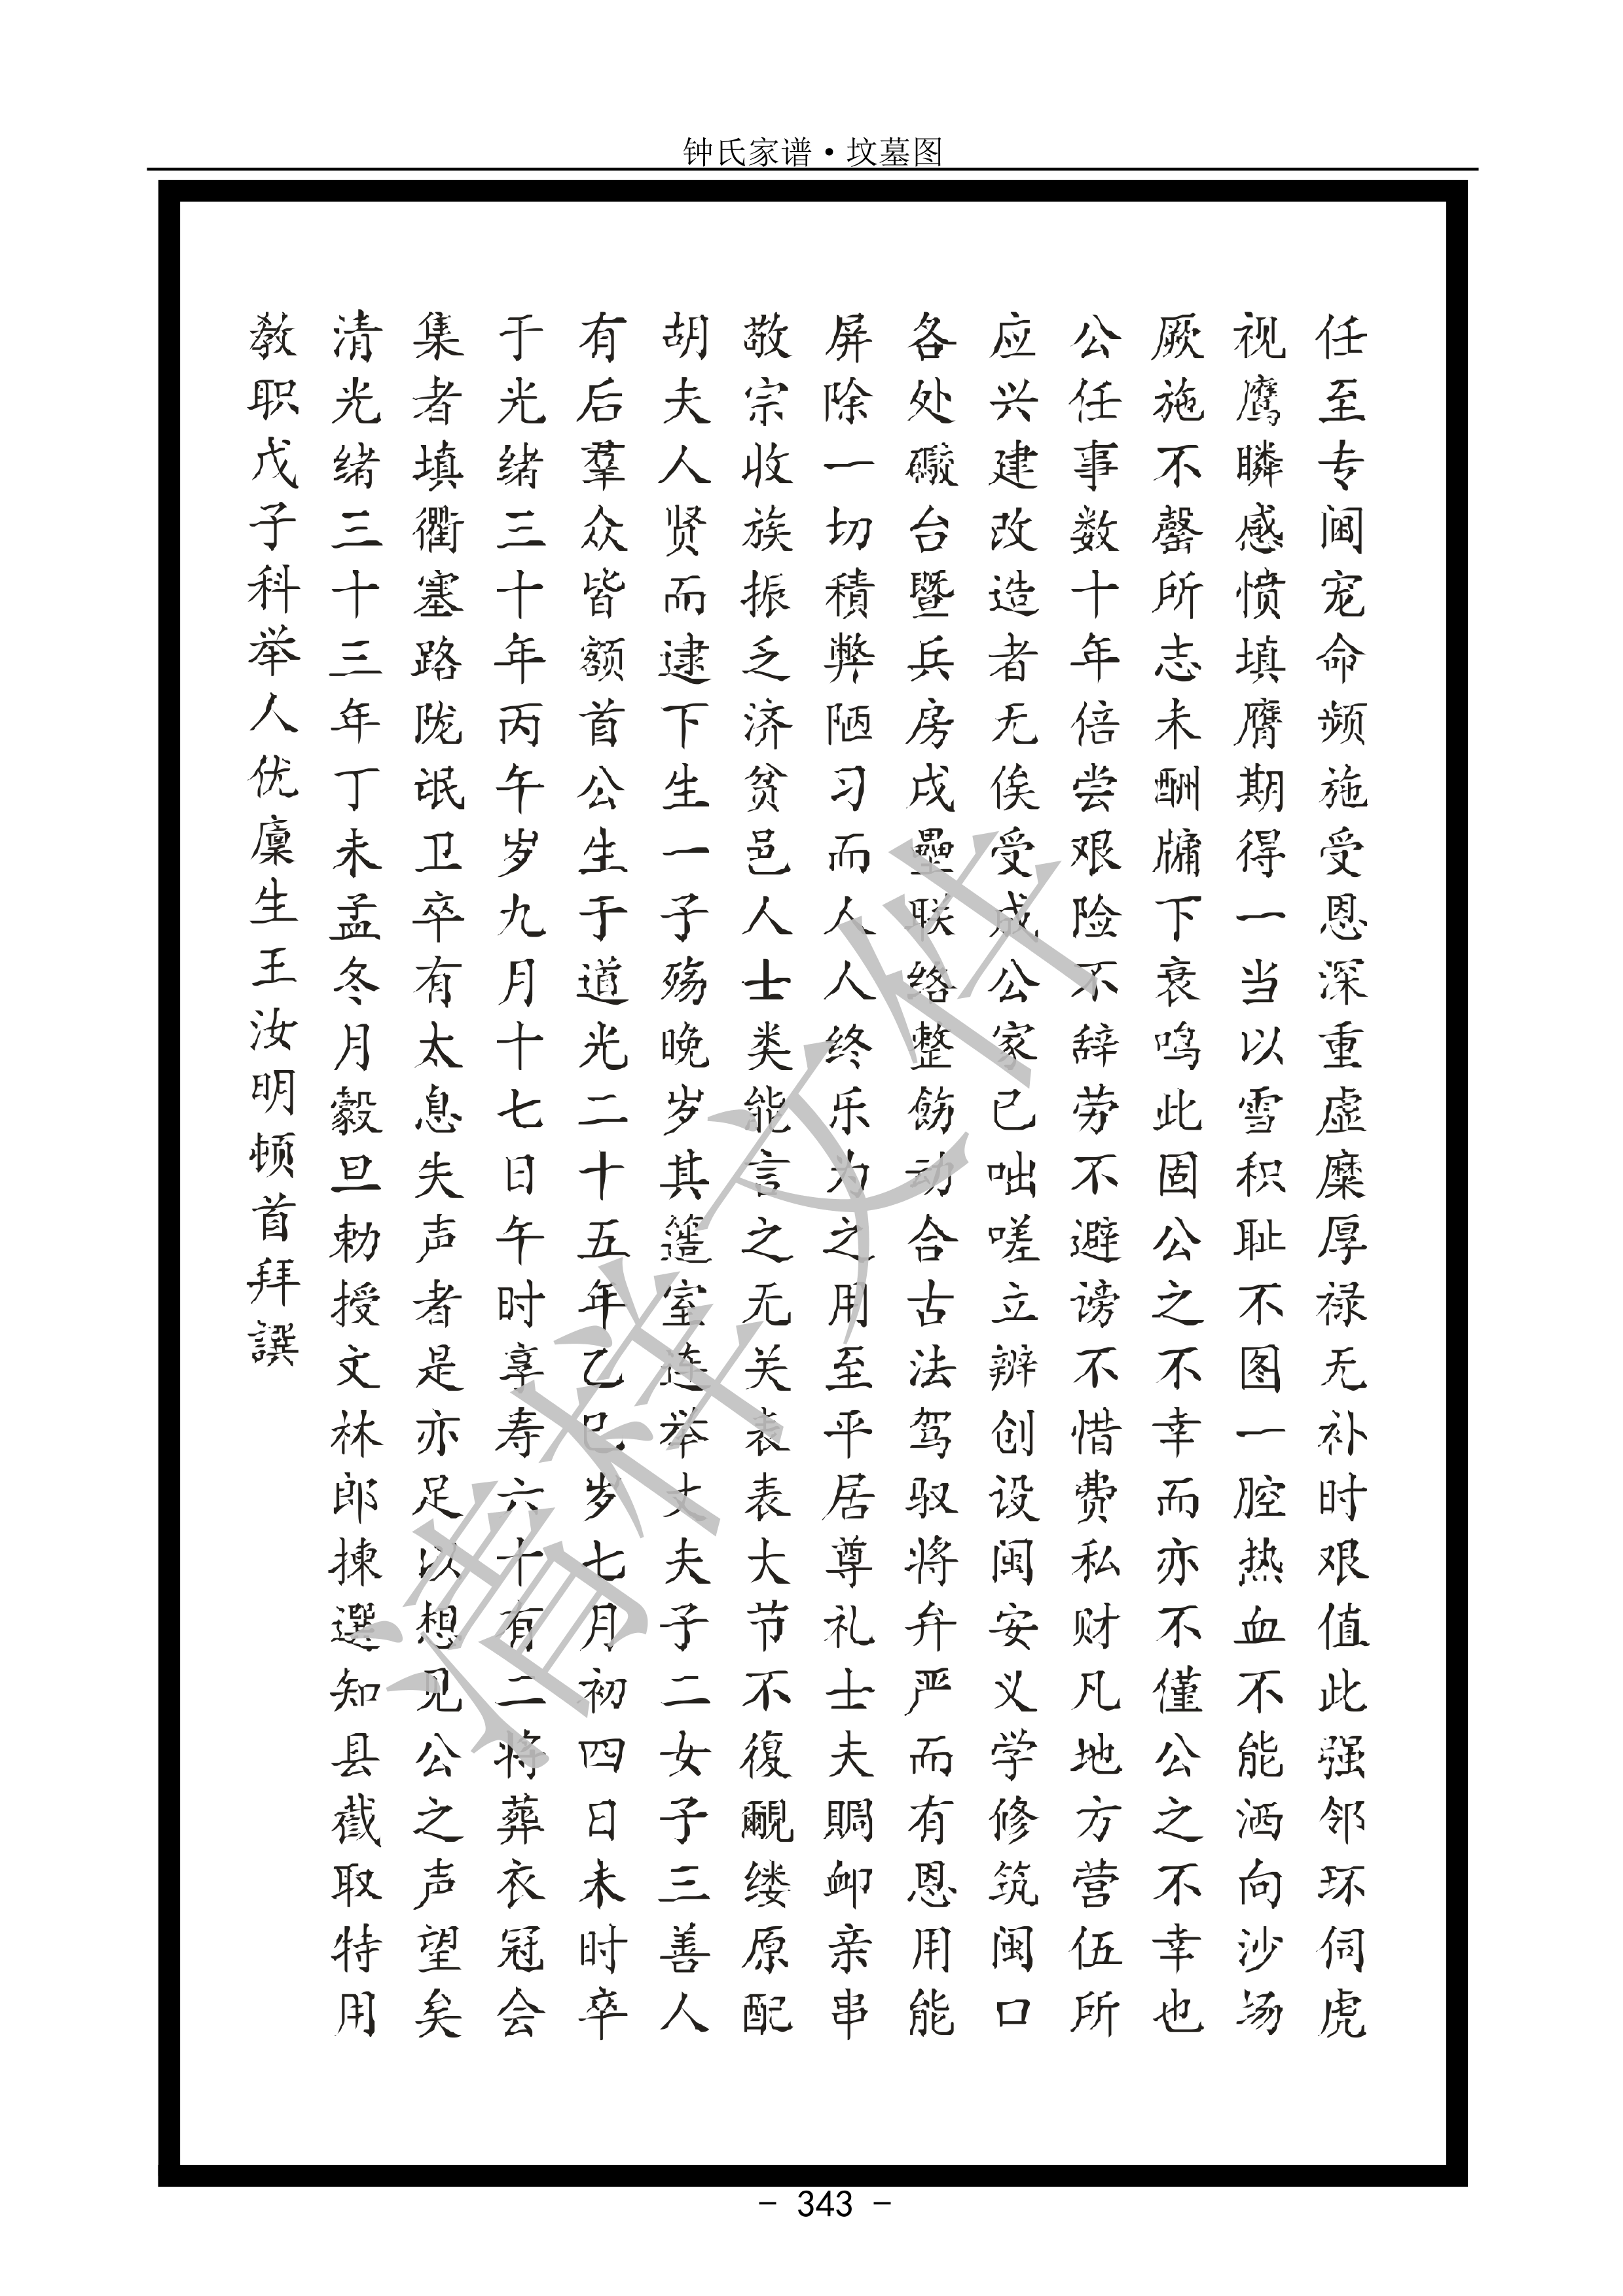 钟氏家谱·坟墓图
任至专阃宠命频施受恩深重虚糜厚禄无补时艰值此强邻环伺虎
视鹰瞵感愤填膺期得一当以雪积耻不图一腔热血不能洒向沙场
厥施不罄所志未酬牗下衰鸣此固公之不幸而亦不僅公之不幸也
公任事数十年倍尝艰险不辞劳不避谤不惜费私财凡地方营伍所
应兴建改造者无俟受成公家己咄嗟立辨创设闽安义学修筑闽口
各处礮台暨兵房戍壘联络整飭动合古法驾驭将弁严而有恩用能
屏除一切積弊陋习而人人终乐为之用至平居尊礼士夫賙卹亲串
敬宗收族振乏济贫邑人士类能言之无关表表大节不復覼缕原配
胡夫人贤而逮下生一子殇晚岁其簉室连举丈夫子二女子三善人
有后羣众皆额首公生于道光二十五年乙巳岁七月初四日未时卒
于光绪三十年丙午岁九月十七日午时享寿六十有二将葬衣冠会
集者填衢塞路陇氓卫卒有太息失声者是亦足以想见公之声望矣
清光绪三十三年丁未孟冬月穀旦勅授文林郎揀選知县截取特用
教职戊子科举人优廩生王汝明顿首拜譔
清样文件
- 343 -